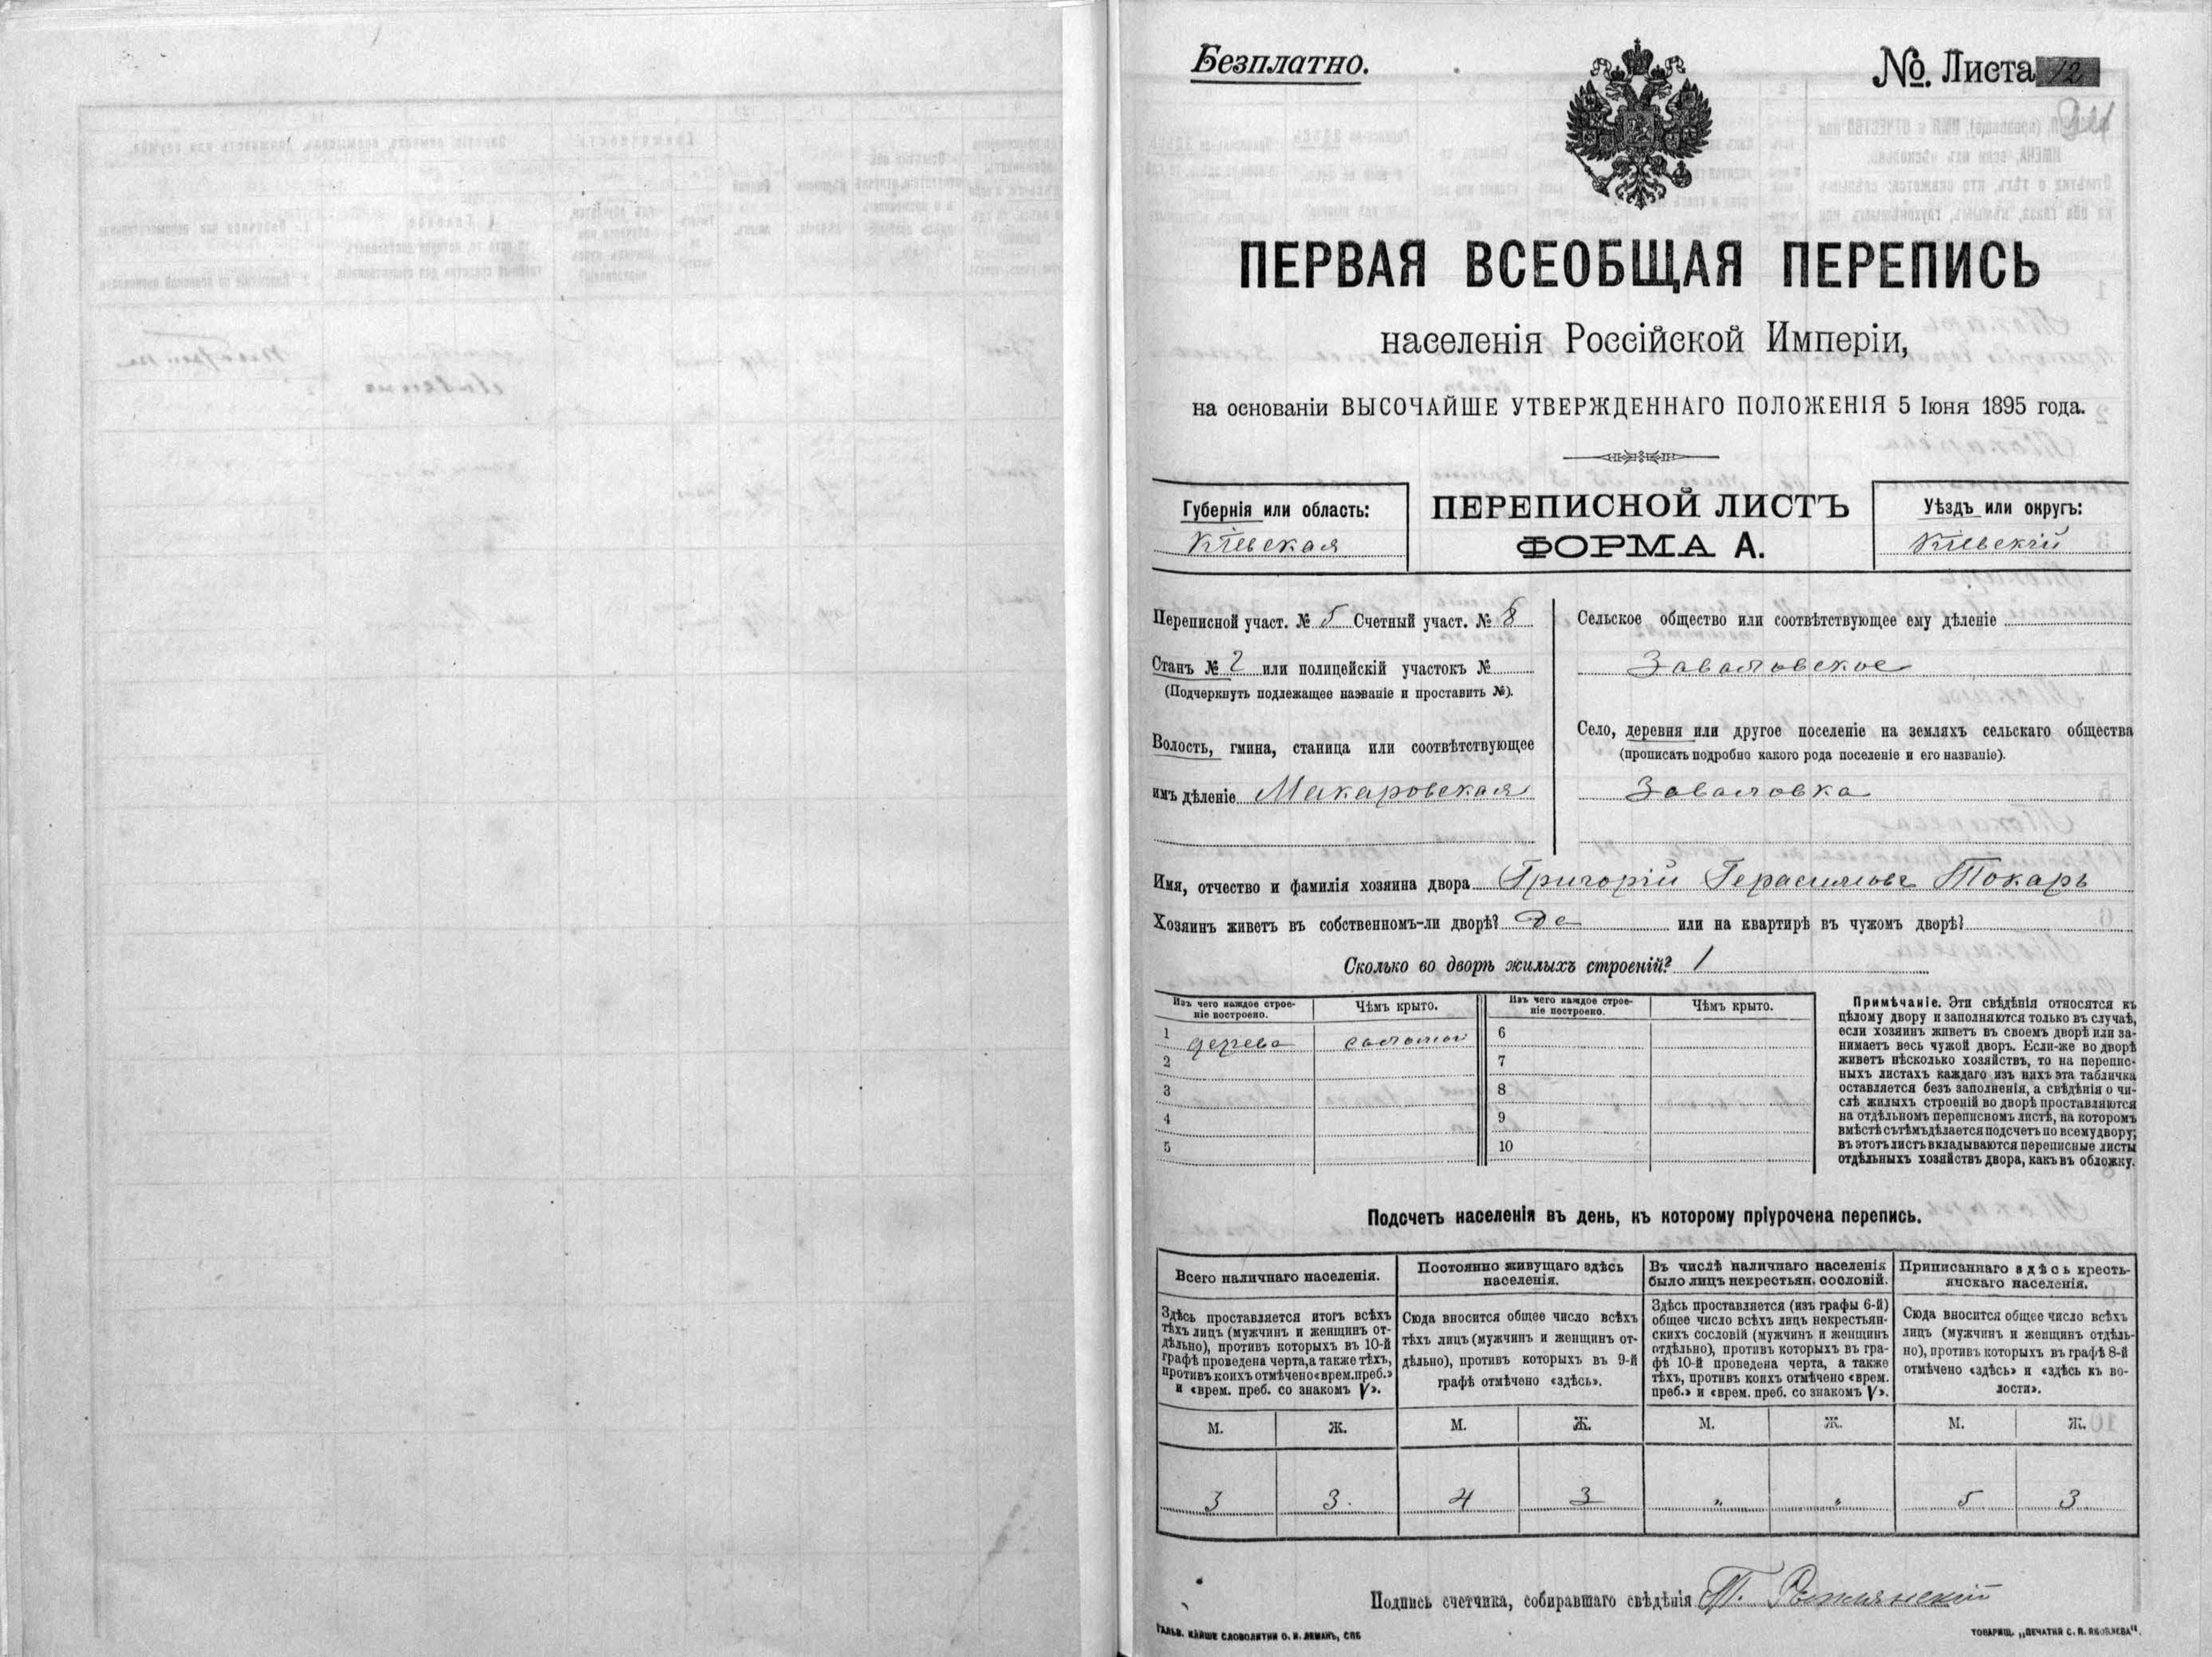 Безплатно.
№. Листа 12
ПЕРВАЯ ВСЕОБЩАЯ ПЕРЕПИСЬ
населенія Россійской Имперіи,
на основаніи ВЫСОЧАЙШЕ УТВЕРЖДЕННАГО ПОЛОЖЕНІЯ 5 Іюня 1895 года.
Губернія или область:
Кіевская
ПЕРЕПИСНОЙ ЛИСТЪ
ФОРМА А.
Уѣздъ или округъ:
Кіевскій
Переписной участ. № 5 Счетный участ. № 8
Станъ № 2 или полицейскій участокъ №
(Подчеркнуть подлежащее названіе и проставить №).
Волость, гмина, станица или соотвѣтствующее
имъ дѣленіе Макаровская
Сельское общество или соотвѣтствующее ему дѣленіе
Заваловское
Село, деревня или другое поселеніе на земляхъ сельскаго общества
(прописать подробно какого рода поселеніе и его названіе).
Заваловка
Имя, отчество и фамилія хозяина двора Григорій Герасимовъ Токарь
Хозяинъ живетъ въ собственномъ-ли дворѣ? Да или на квартирѣ въ чужомъ дворѣ?
Сколько во дворѣ жилыхъ строеній? 1
Изъ чего каждое строе-
ніе построено.
Чѣмъ крыто.
Изъ чего каждое строе-
ніе построено.
Чѣмъ крыто.
1 дерева соломой 6
2 7
3 8
4 9
5 10
Примѣчаніе. Эти свѣдѣнія относятся къ
цѣлому двору и заполняются только въ случаѣ,
если хозяинъ живетъ въ своемъ дворѣ или за-
нимаетъ весь чужой дворъ. Если-же во дворѣ
живетъ нѣсколько хозяйствъ, то на перепис-
ныхъ листахъ каждаго изъ нихъ эта табличка
оставляется безъ заполненія, а свѣдѣнія о чи-
слѣ жилыхъ строеній во дворѣ проставляются
на отдѣльномъ переписномъ листѣ, на которомъ
вмѣстѣ съ тѣмъ дѣлается подсчетъ по всему двору;
въ этотъ листъ вкладываются переписные листы
отдѣльныхъ хозяйствъ двора, какъ въ обложку.
Подсчетъ населенія въ день, къ которому пріурочена перепись.
Всего наличнаго населенія.
Здѣсь проставляется итогъ всѣхъ
тѣхъ лицъ (мужчинъ и женщинъ от-
дѣльно), противъ которыхъ въ 10-й
графѣ проведена черта, а также тѣхъ,
противъ коихъ отмѣчено «врем. преб.»
и «врем. преб. со знакомъ V».
Постоянно живущаго здѣсь
населенія.
Сюда вносится общее число всѣхъ
тѣхъ лицъ (мужчинъ и женщинъ от-
дѣльно), противъ которыхъ въ 9-й
графѣ отмѣчено «здѣсь».
Въ числѣ наличнаго населенія
было лицъ некрестьян. сословій.
Здѣсь проставляется (изъ графы 6-й)
общее число всѣхъ лицъ некрестьян-
скихъ сословій (мужчинъ и женщинъ
отдѣльно), противъ которыхъ въ гра-
фѣ 10-й проведена черта, а также
тѣхъ, противъ коихъ отмѣчено «врем.
преб.» и «врем. преб. со знакомъ V».
Приписаннаго здѣсь кресть-
янскаго населенія.
Сюда вносится общее число всѣхъ
лицъ (мужчинъ и женщинъ отдѣль-
но), противъ которыхъ въ графѣ 8-й
отмѣчено «здѣсь» и «здѣсь къ во-
лости».
М. Ж. М. Ж. М. Ж. М. Ж.
3 3. 4 3 " " 5 3
Подпись счетчика, собиравшаго свѣдѣнія
ГАЛЬВ. КЛИШЕ СЛОВОЛИТНИ О. И. ЛЕМАНЪ, СПБ
ТОВАРИЩ. „ПЕЧАТНЯ С. П. ЯКОВЛЕВА".